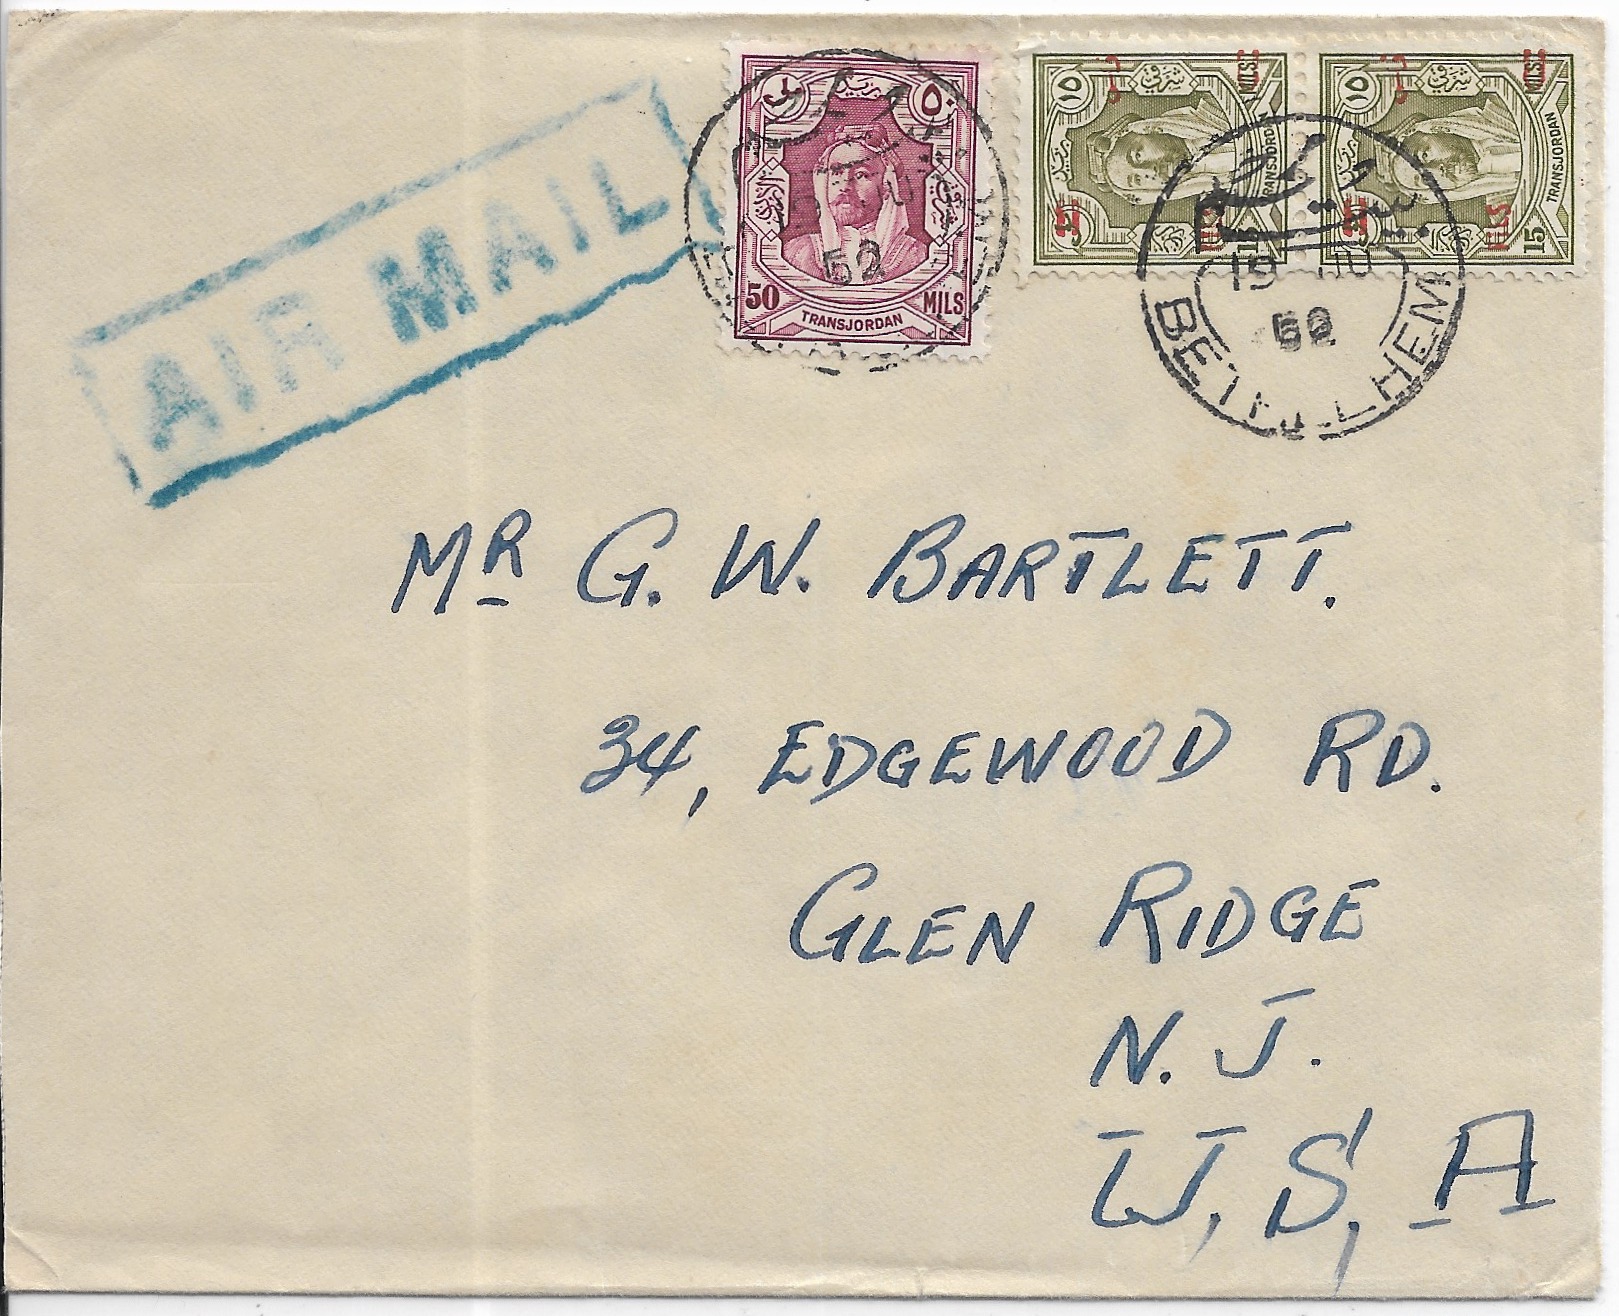 AIR MAIL
٥٠
50 MILS
TRANSJORDAN
52
١٥
TRANSJORDAN
١٥
TRANSJORDAN
15
19
52
BETHLEHEM
MR G. W. BARTLETT.
34, EDGEWOOD RD.
GLEN RIDGE
N. J.
U, S, A